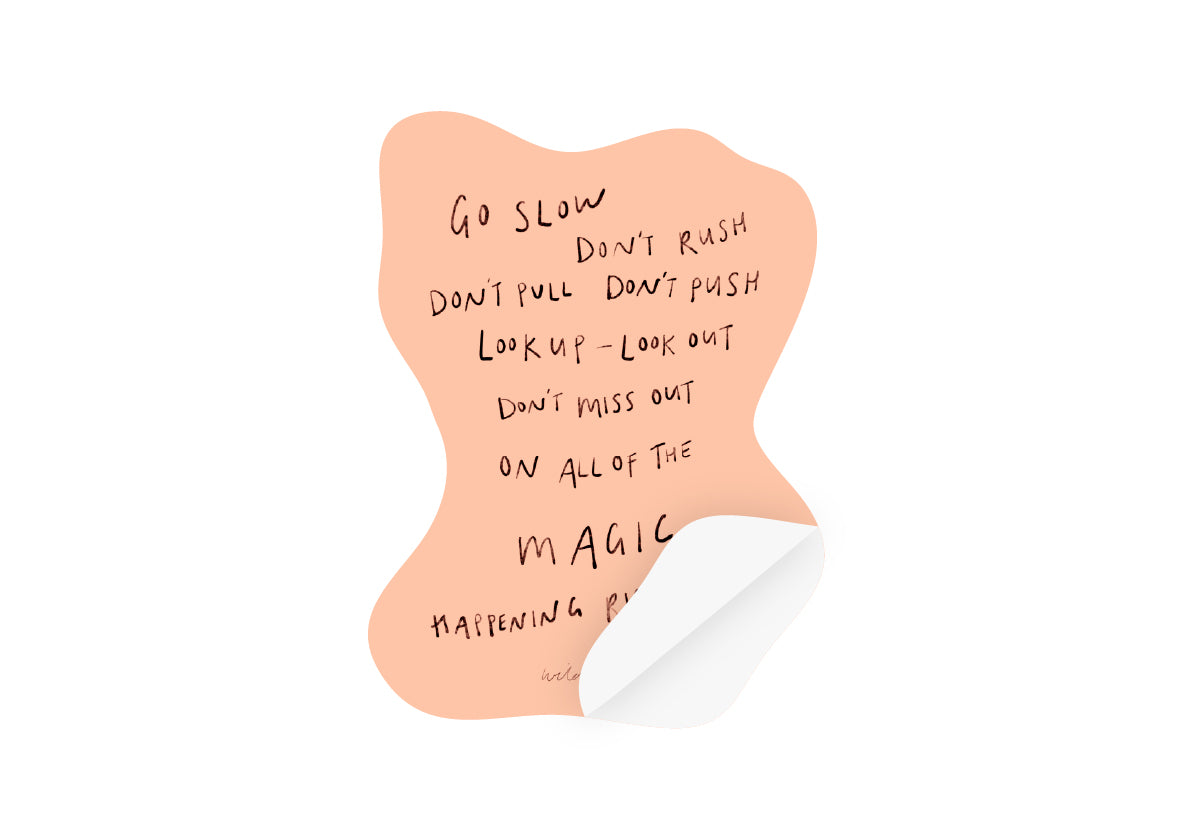 GO SLOW
DON'T RUSH
DON'T PULL DON'T PUSH
LOOK UP – LOOK OUT
DON'T MISS OUT
ON ALL OF THE
MAGIC
HAPPENING